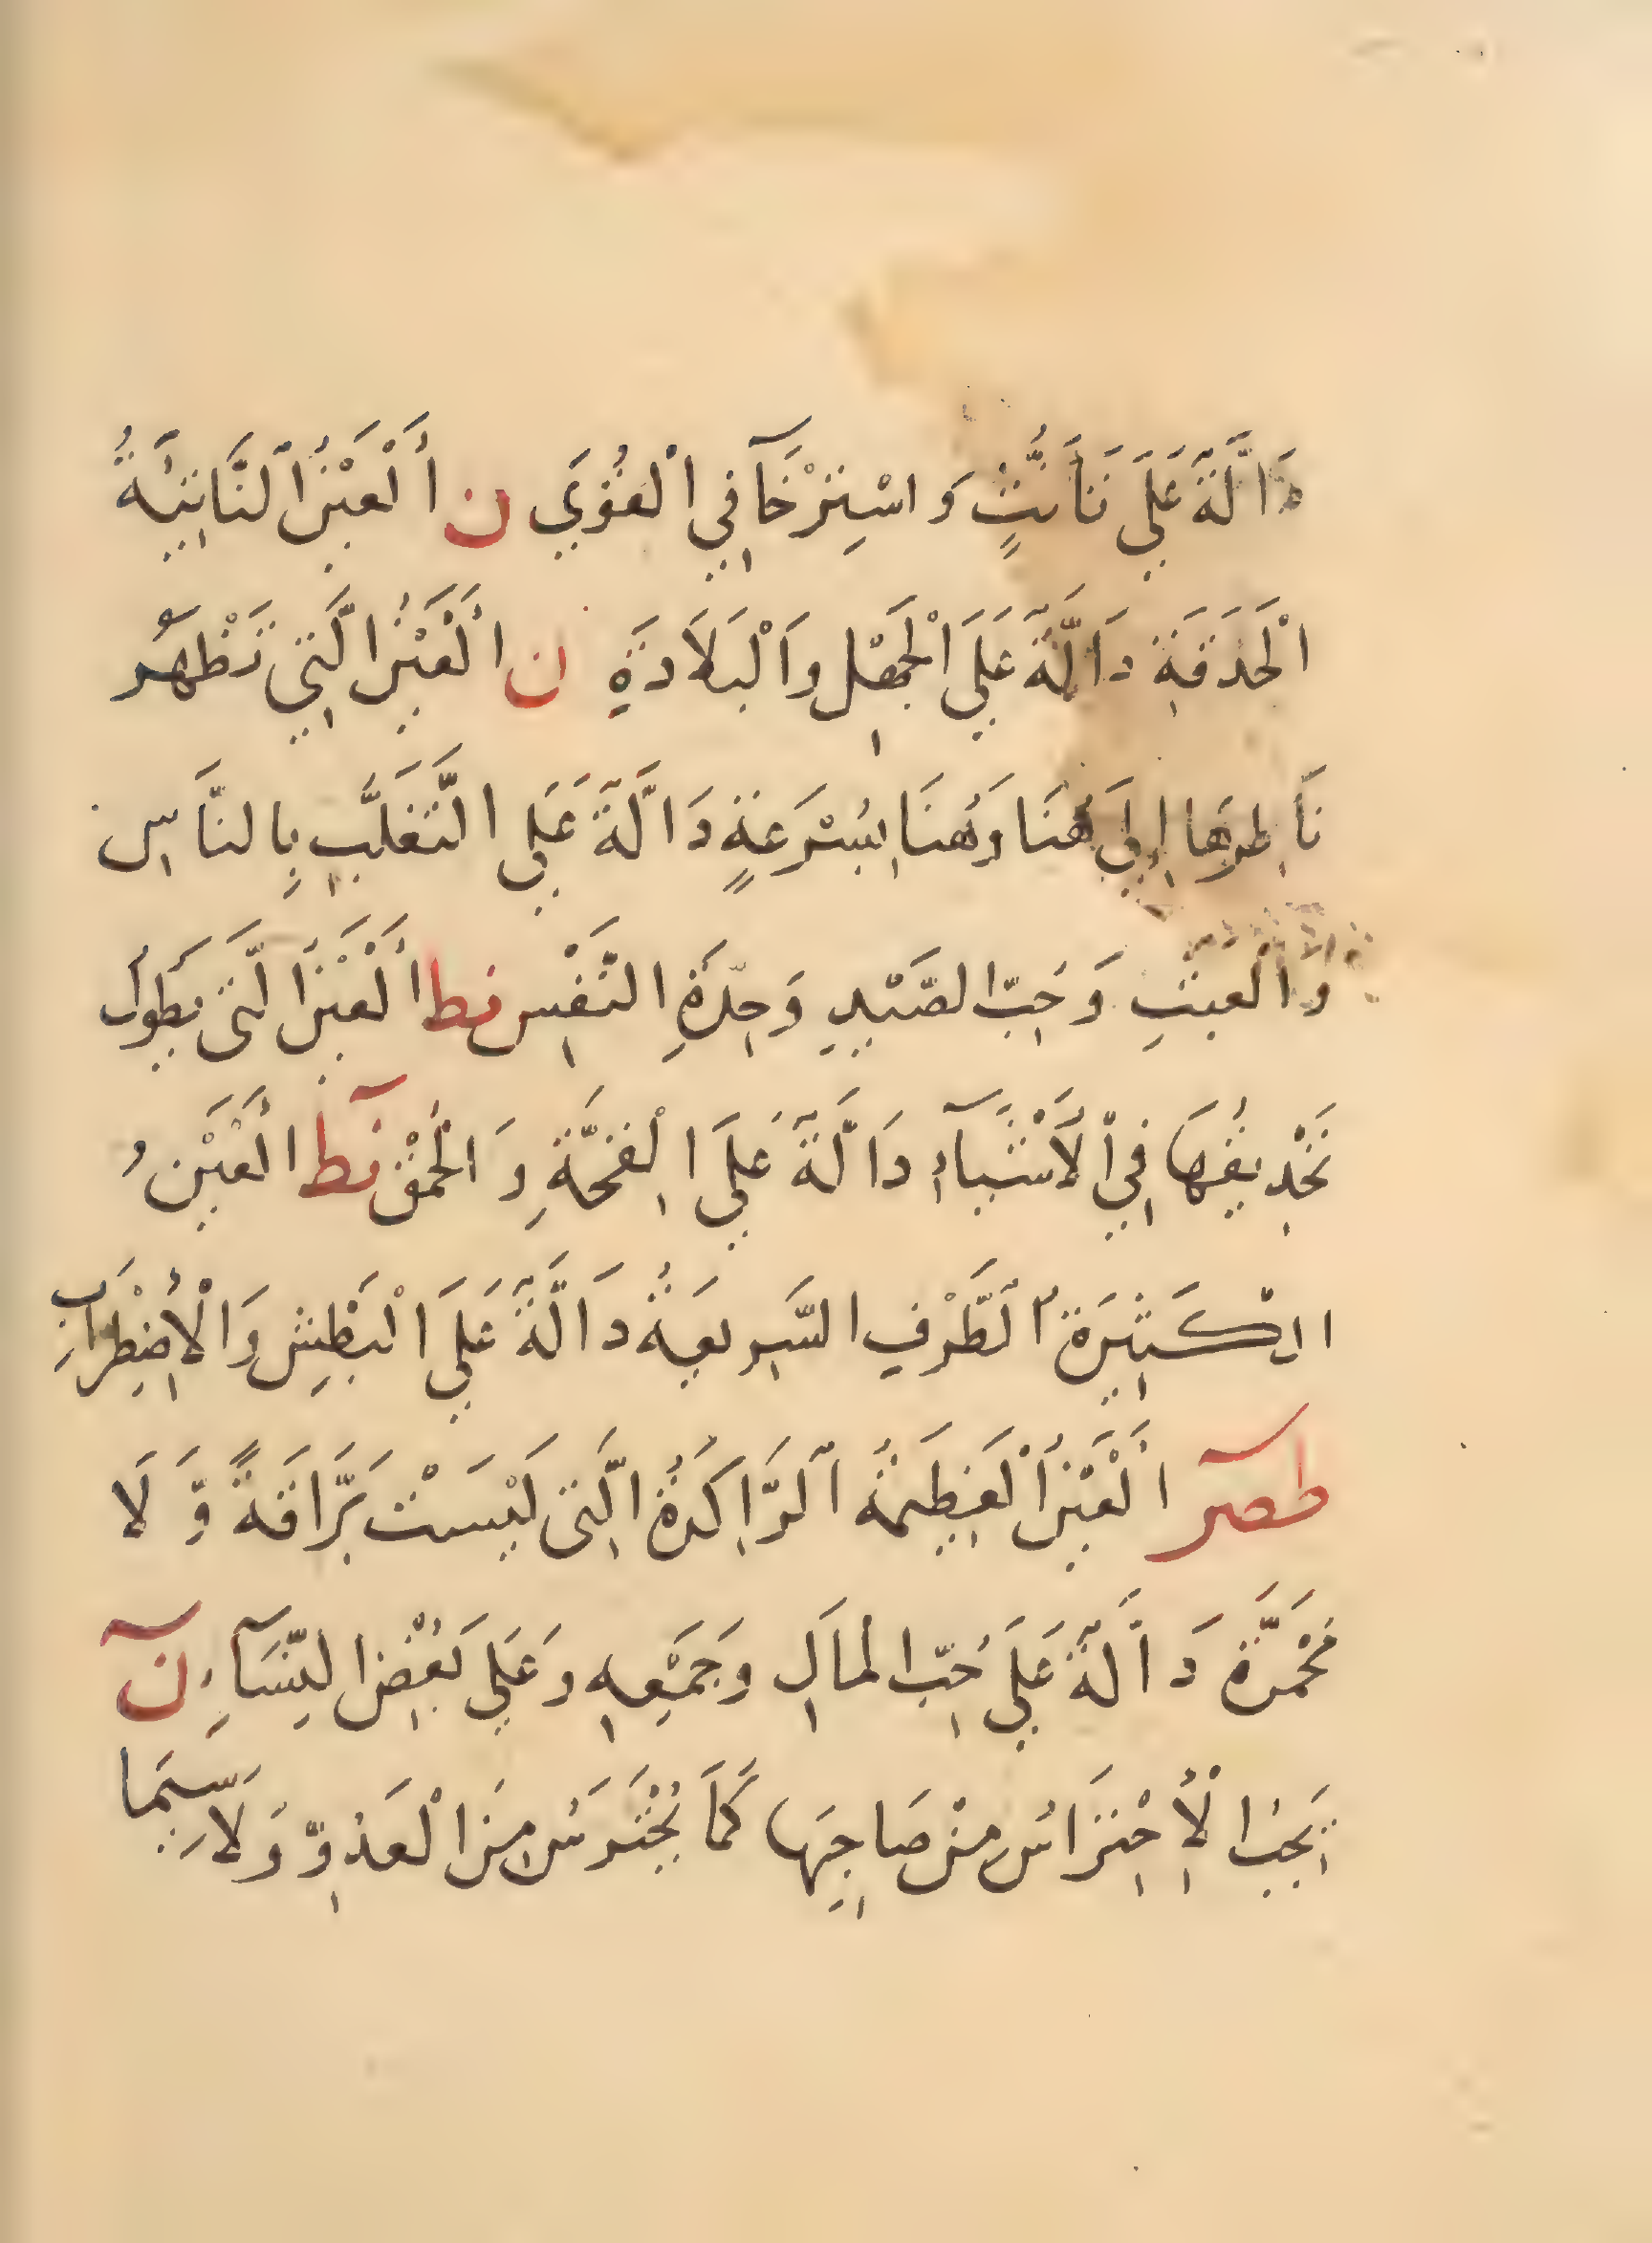 دَالَّةٌ عَلَي تَأَنُّثٍ وَاسْتِرْخَآ فِي الْقُوَي ن أَلْعَيْنُ النَّاتِئَةُ
الْحَدَقَةِ دَالَّةٌ عَلَي الْجَهْلِ وَالْبَلَادَةِ ن الْعَيْنُ الَّتِي تَظْهَرُ
إِلَي هُنَا وَهُنَا بِسُرْعَةٍ دَالَّةٌ عَلَي التَّغَلُّبِ بِالنَّاسِ
وَالْعَبَثِ وَحُبِّ الصَّيْدِ وَحِدَّةِ النَّفْسِ نط الْعَيْنُ الَّتِي يَطُولُ
تَحْدِيقُهَا فِي الْأَشْيَآءِ دَالَّةٌ عَلَي الْقِحَّةِ وَالْحُمْقِ نط الْعَيْنُ
الْكَثِيرَةُ الطَّرْفِ السَّرِيعَةُ دَالَّةٌ عَلَي الْبَطْشِ وَالْاِضْطِرَابِ
طصر الْعَيْنُ الْعَظِيمَةُ الرَّاكِدَةُ الَّتِي لَيْسَتْ بَرَّاقَةً وَّلَا
مُحْمَرَّةً دَالَّةٌ عَلَي حُبِّ الْمَالِ وَجَمْعِهِ وَعَلَي بُغْضِ النِّسَآءِ ن
يَجِبُ الْاِحْتِرَاسُ مِنْ صَاحِبِهَا كَمَا يُحْتَرَسُ مِنَ الْعَدُوِّ وَلَا سِيَّمَا